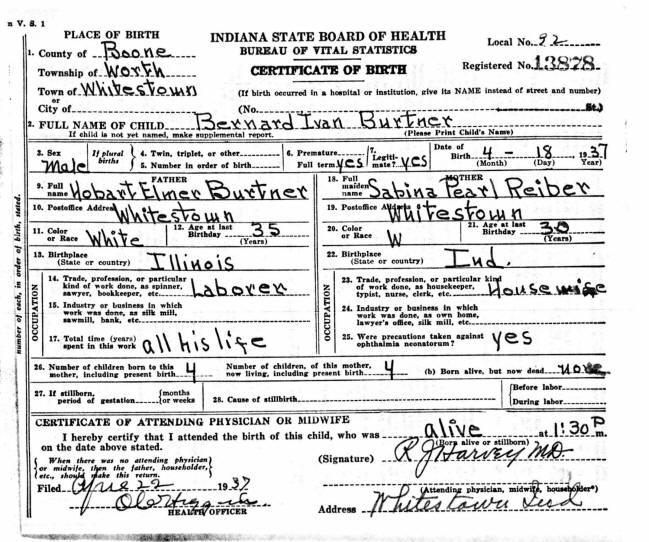 n V. S. 1
PLACE OF BIRTH
INDIANA STATE BOARD OF HEALTH
BUREAU OF VITAL STATISTICS
CERTIFICATE OF BIRTH
Local No. 92
Registered No. 13828
1. County of Boone
Township of Worth
Town of Whitestown
or
City of
(If birth occurred in a hospital or institution, give its NAME instead of street and number)
(No. St.)
2. FULL NAME OF CHILD Bernard Ivan Burtner
If child is not yet named, make supplemental report. (Please Print Child's Name)
3. Sex Male
If plural births
4. Twin, triplet, or other
5. Number in order of birth
6. Premature
Full term yes
7. Legitimate? yes
Date of Birth 4 - 18 1937
(Month) (Day) Year)
FATHER
9. Full name Hobart Elmer Burtner
MOTHER
18. Full maiden name Sabina Pearl Reiber
10. Postoffice Address Whitestown
19. Postoffice Address Whitestown
11. Color or Race White
12. Age at last Birthday 35 (Years)
20. Color or Race W
21. Age at last Birthday 30 (Years)
13. Birthplace (State or country) Illinois
22. Birthplace (State or country) Ind.
OCCUPATION
14. Trade, profession, or particular kind of work done, as spinner, sawyer, bookkeeper, etc. Laborer
15. Industry or business in which work was done, as silk mill, sawmill, bank, etc.
17. Total time (years) spent in this work all his life
OCCUPATION
23. Trade, profession, or particular kind of work done, as housekeeper, typist, nurse, clerk, etc. Housewife
24. Industry or business in which work was done, as own home, lawyer's office, silk mill, etc.
25. Were precautions taken against ophthalmia neonatorum? yes
26. Number of children born to this mother, including present birth 4
Number of children, of this mother, now living, including present birth 4
(b) Born alive, but now dead None
27. If stillborn, period of gestation {months or weeks
28. Cause of stillbirth
{Before labor
{During labor
CERTIFICATE OF ATTENDING PHYSICIAN OR MIDWIFE
I hereby certify that I attended the birth of this child, who was alive at 1:30 P m.
on the date above stated. (Born alive or stillborn)
{When there was no attending physician or midwife, then the father, householder, etc., should make this return.}
(Signature) R J Harvey MD
(Attending physician, midwife, householder*)
Filed 22 1937
HEALTH OFFICER
Address Whitestown Ind
number of each, in order of birth, stated.